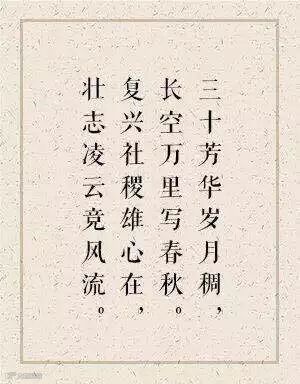 三十芳华岁月稠，
长空万里写春秋。
复兴社稷雄心在，
壮志凌云竞风流。